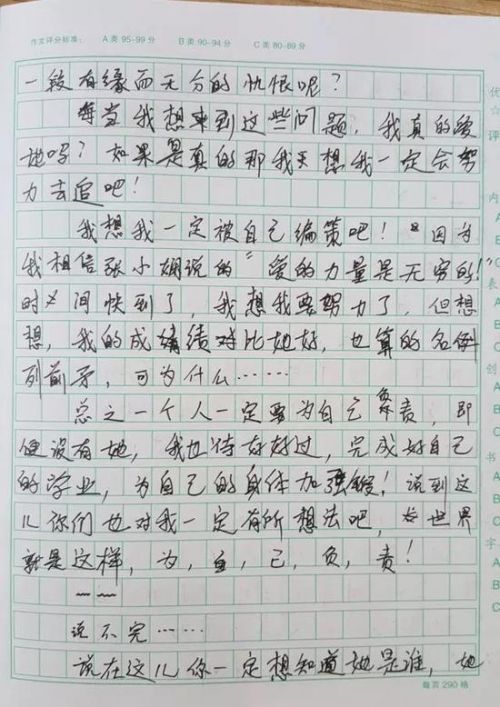 作文评分标准： A类95-99分 B类90-94分 C类80-89分
一段有缘而无分的仇恨呢？
每当我想来到这些问题，我真的爱
她吗？如果是真的那我想我一定会努
力去追吧！
我想我一定被自己编策吧！"因为
我相信张小娴说的"爱的力量是无穷的！
时间快到了，我想我要努力了，但想
想，我的成绩对比她好，也算的名例
列前矛，可为什么……
总之一个人一定要为自己负责，即
便没有她，我也得好好过，完成好自己
的学业，为自己的身体加强锻！说到这
儿你们也对我一定有所想法吧，世界
就是这样，为，自，己，负，责！
——
说不完……
说在这儿你一定想知道她是谁，她
每页290格
优
☆
评
内
A
B
C
表
A
B
C
创
A
B
C
书
A
B
C
字
A
B
C